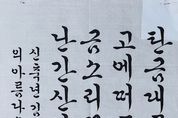 탄금대
고에떠
금소리
난간신
신축년 김
의 아름나